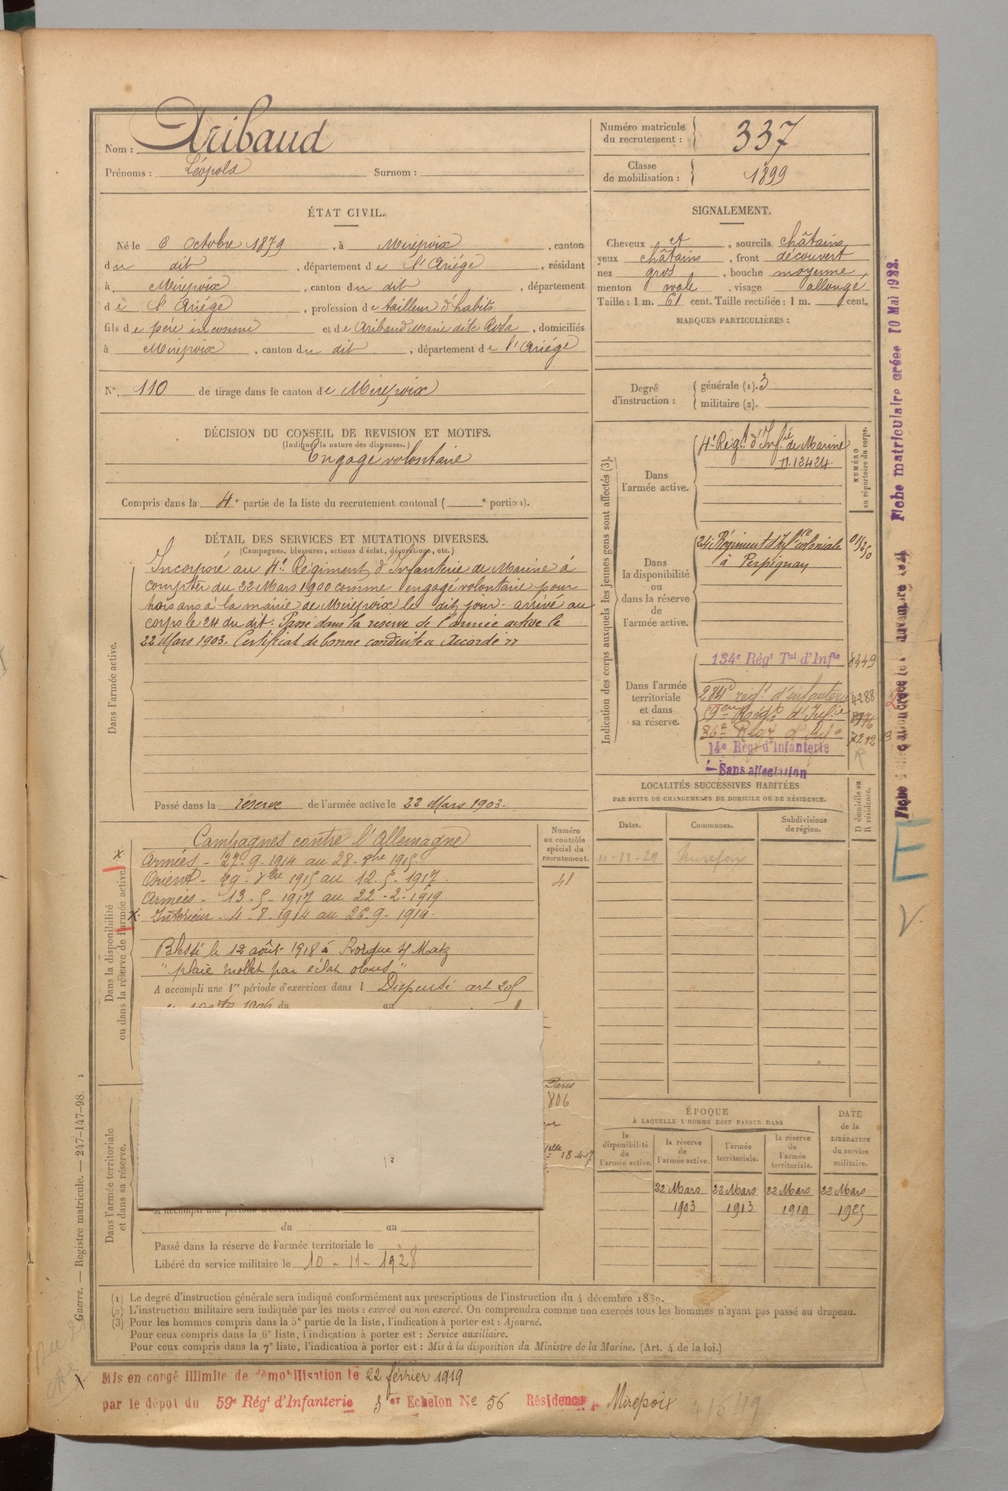 Nom : Aribaud
Prénoms : Léopold Surnom :
Numéro matricule du recrutement : 337
Classe de mobilisation : 1899
ÉTAT CIVIL.
Né le 6 Octobre 1879, à Mirepoix, canton
du dit, département de l'Ariége, résidant
à Mirepoix, canton du dit, département
de l'Ariége, profession de tailleur d'habits
fils de père inconnu et de Aribaud Marie dite Rosa, domiciliés
à Mirepoix, canton du dit, département de l'Ariége
N° 110 de tirage dans le canton de Mirepoix
SIGNALEMENT.
Cheveux et, sourcils châtains
yeux châtains, front découvert
nez gros, bouche moyenne
menton ovale, visage allongé
Taille : 1 m. 61 cent. Taille rectifiée : 1 m. cent.
MARQUES PARTICULIÈRES :
Degré d'instruction : générale (1). 3
militaire (2).
DÉCISION DU CONSEIL DE REVISION ET MOTIFS.
(Indiquer la nature des dispenses.)
Engagé volontaire
Compris dans la 4e partie de la liste du recrutement cantonal ( e portion).
DÉTAIL DES SERVICES ET MUTATIONS DIVERSES.
(Campagnes, blessures, actions d'éclat, décorations, etc.)
Dans l'armée active.
Incorporé au 4e Régiment d'Infanterie de Marine à
compter du 22 Mars 1900 comme engagé volontaire pour
trois ans à la mairie de Mirepoix le dit jour. arrivé au
corps le 24 du dit. Passé dans la réserve de l'armée active le
22 Mars 1903. Certificat de bonne conduite Accordé
Passé dans la réserve de l'armée active le 22 Mars 1903.
Indication des corps auxquels les jeunes gens sont affectés (3).
NUMÉRO au répertoire du corps.
Dans l'armée active.
4e Régt d'Infie de Marine
n. 12424
Dans la disponibilité ou dans la réserve de l'armée active.
24e Régiment d'Infie coloniale
à Perpignan
Dans l'armée territoriale et dans sa réserve.
134e Régt Tal d'Infie 8449
284e regt d'infanterie 4288
14e Régt d'Infanterie
Sans affectation
Fiche matriculaire créée 10 Mai 1922.
LOCALITÉS SUCCESSIVES HABITÉES
PAR SUITE DE CHANGEMENTS DE DOMICILE OU DE RÉSIDENCE.
D domicile ou R résidence.
Dates. Communes. Subdivisions de région.
Dans la disponibilité ou dans la réserve de l'armée active.
Numéro au contrôle spécial du recrutement.
41
Campagnes contre l'Allemagne
Armées - 27-9-1914 au 28-8bre 1915
Orient - 29-8bre 1915 au 12-5-1917
Armées - 13-5-1917 au 22-2-1919
Intérieur - 4-8-1914 au 26-9-1914
Blessé le 12 août 1918 à
"plaie mollet par éclat obus"
A accompli une 1re période d'exercices dans l Dispensé art
Paris
806
18-4-17
Dans l'armée territoriale et dans sa réserve.
du au
Passé dans la réserve de l'armée territoriale le
Libéré du service militaire le 10-11-1928
ÉPOQUE
À LAQUELLE L'HOMME DOIT PASSER DANS
la disponibilité de l'armée active.
la réserve de l'armée active.
l'armée territoriale.
la réserve de l'armée territoriale.
DATE de la LIBÉRATION du service militaire.
22 Mars 1903
22 Mars 1913
22 Mars 1919
22 Mars 1925
(1) Le degré d'instruction générale sera indiqué conformément aux prescriptions de l'instruction du 4 décembre 1889.
(2) L'instruction militaire sera indiquée par les mots : exercé ou non exercé. On comprendra comme non exercés tous les hommes n'ayant pas passé au drapeau.
(3) Pour les hommes compris dans la 5e partie de la liste, l'indication à porter est : Ajourné.
Pour ceux compris dans la 6e liste, l'indication à porter est : Service auxiliaire.
Pour ceux compris dans la 7e liste, l'indication à porter est : Mis à la disposition du Ministre de la Marine. (Art. 4 de la loi.)
Guerre. — Registre matricule. — 247-147-98. 1
Mis en congé illimité de démobilisation le 22 février 1919
par le dépot du 59e Régt d'Infanterie 3e Echelon No 56 Résidence Mirepoix